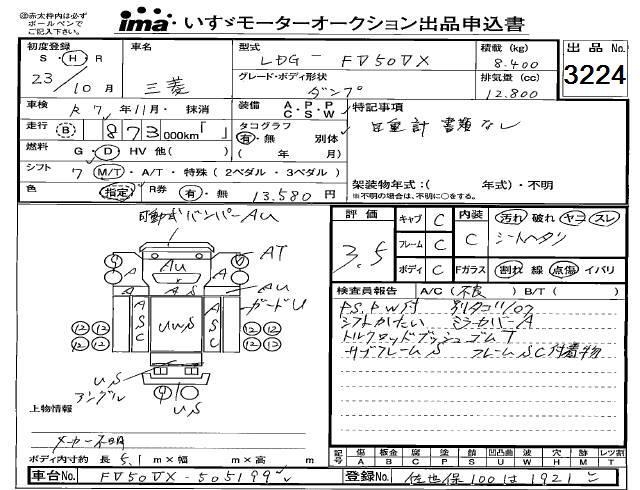 ㊟赤太枠内は必ず
ボールペンで
ご記入下さい。
ima いすゞモーターオークション出品申込書
初度登録
S・H・R
23/10月
車名
三菱
型式
LDG-FV50VX
グレード・ボディ形状
ダンプ
積載(kg)
8.400
排気量(cc)
12.800
出品No.
3224
車検 R7年11月・抹消
装備 A・P・P C・S・W
特記事項
自重計書類なし
走行 B 873 000km「 」
タコグラフ
有・無 別体
( 年 月)
燃料 G・D・HV 他( )
シフト 7 M/T・A/T・特殊(2ペダル・3ペダル)
架装物年式:( 年式)・不明
※不明の場合は、不明に○をする。
色 指定 R券 有・無 13.580円
可動式バンパーAU
評価
3.5
キャブ C
フレーム C
ボディ C
内装 C
Fガラス
汚れ 破れ ヤニ スレ
シートヘタリ
割れ 線 点傷 イバリ
AT
AU
A
A
A
A S
AU
ガードU
A S C
UWS
A S C
12 12 12 12
12 12 12 12
US
アングル
US
検査員報告 A/C(不良) B/T( )
PS.PW付
シフトかたい ミラーカバーA
トルクロッドブッシュゴムT
サブフレームS フレームSC付着物
上物情報
メーカー不明
ボディ内寸約 長5.1m×幅 m×高 m
記号 傷A 板金B 腐C 塗P 錆S 凹凸曲U 波W 穴H 跡M レツ割T
車台No. FV50VX-505199
登録No. 佐世保100は1921